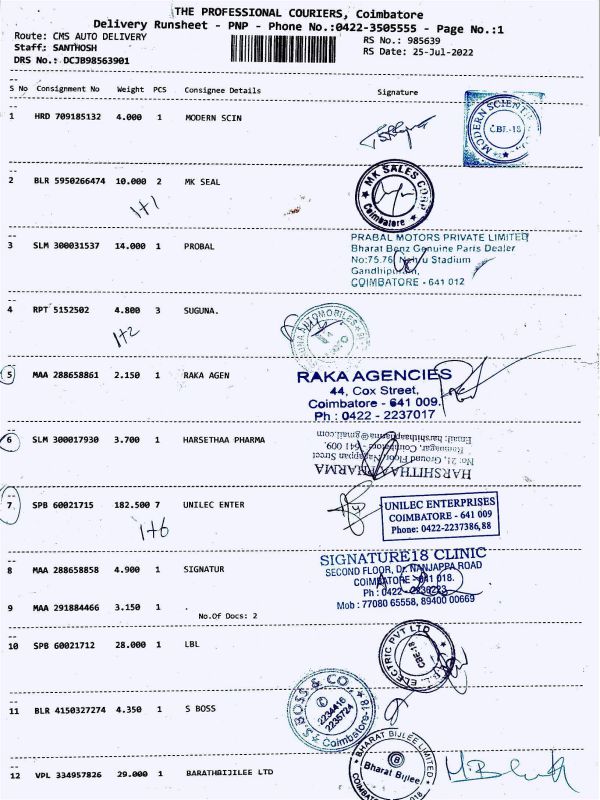 THE PROFESSIONAL COURIERS, Coimbatore
Delivery Runsheet - PNP - Phone No.:0422-3505555 - Page No.:1
Route: CMS AUTO DELIVERY
RS No.: 985639
Staff: SANTHOSH
RS Date: 25-Jul-2022
DRS No.: DCJB98563901
S No Consignment No Weight PCS Consignee Details Signature
1 HRD 709185132 4.000 1 MODERN SCIN
MODERN SCIENT
CBE-18
2 BLR 5950266474 10.000 2 MK SEAL
1+1
MK SALES CORP
Coimbatore
3 SLM 300031537 14.000 1 PROBAL
PRABAL MOTORS PRIVATE LIMITED
Bharat Benz Genuine Parts Dealer
No:75.76, Nehru Stadium
Gandhipuram,
COIMBATORE - 641 012
4 RPT 5152502 4.800 3 SUGUNA.
1+2
SUGUNA AUTOMOBILES
5 MAA 288658861 2.150 1 RAKA AGEN
RAKA AGENCIES
44, Cox Street,
Coimbatore - 641 009.
Ph : 0422 - 2237017
6 SLM 300017930 3.700 1 HARSETHAA PHARMA
HARSHITHAA PHARMA
No: 21, Ground Floor, Nagappan Street
Ramnagar, Coimbatore - 641 009.
Email: harshithaapharma@gmail.com
7 SPB 60021715 182.500 7 UNILEC ENTER
1+6
UNILEC ENTERPRISES
COIMBATORE - 641 009
Phone: 0422-2237386,88
8 MAA 288658858 4.900 1 SIGNATUR
SIGNATURE18 CLINIC
SECOND FLOOR, Dr. NANJAPPA ROAD
COIMBATORE - 641 018.
Ph : 0422 -
Mob : 77080 65558, 89400 00669
9 MAA 291884466 3.150 1 .
No.Of Docs: 2
10 SPB 60021712 28.000 1 LBL
ELECTRIC PVT LTD
CBE-18
11 BLR 4150327274 4.350 1 S BOSS
S.BOSS & CO.,
2234416
2235724
Coimbatore-18
12 VPL 334957826 29.000 1 BARATHBIJILEE LTD
BHARAT BIJLEE LIMITED
Bharat Bijlee